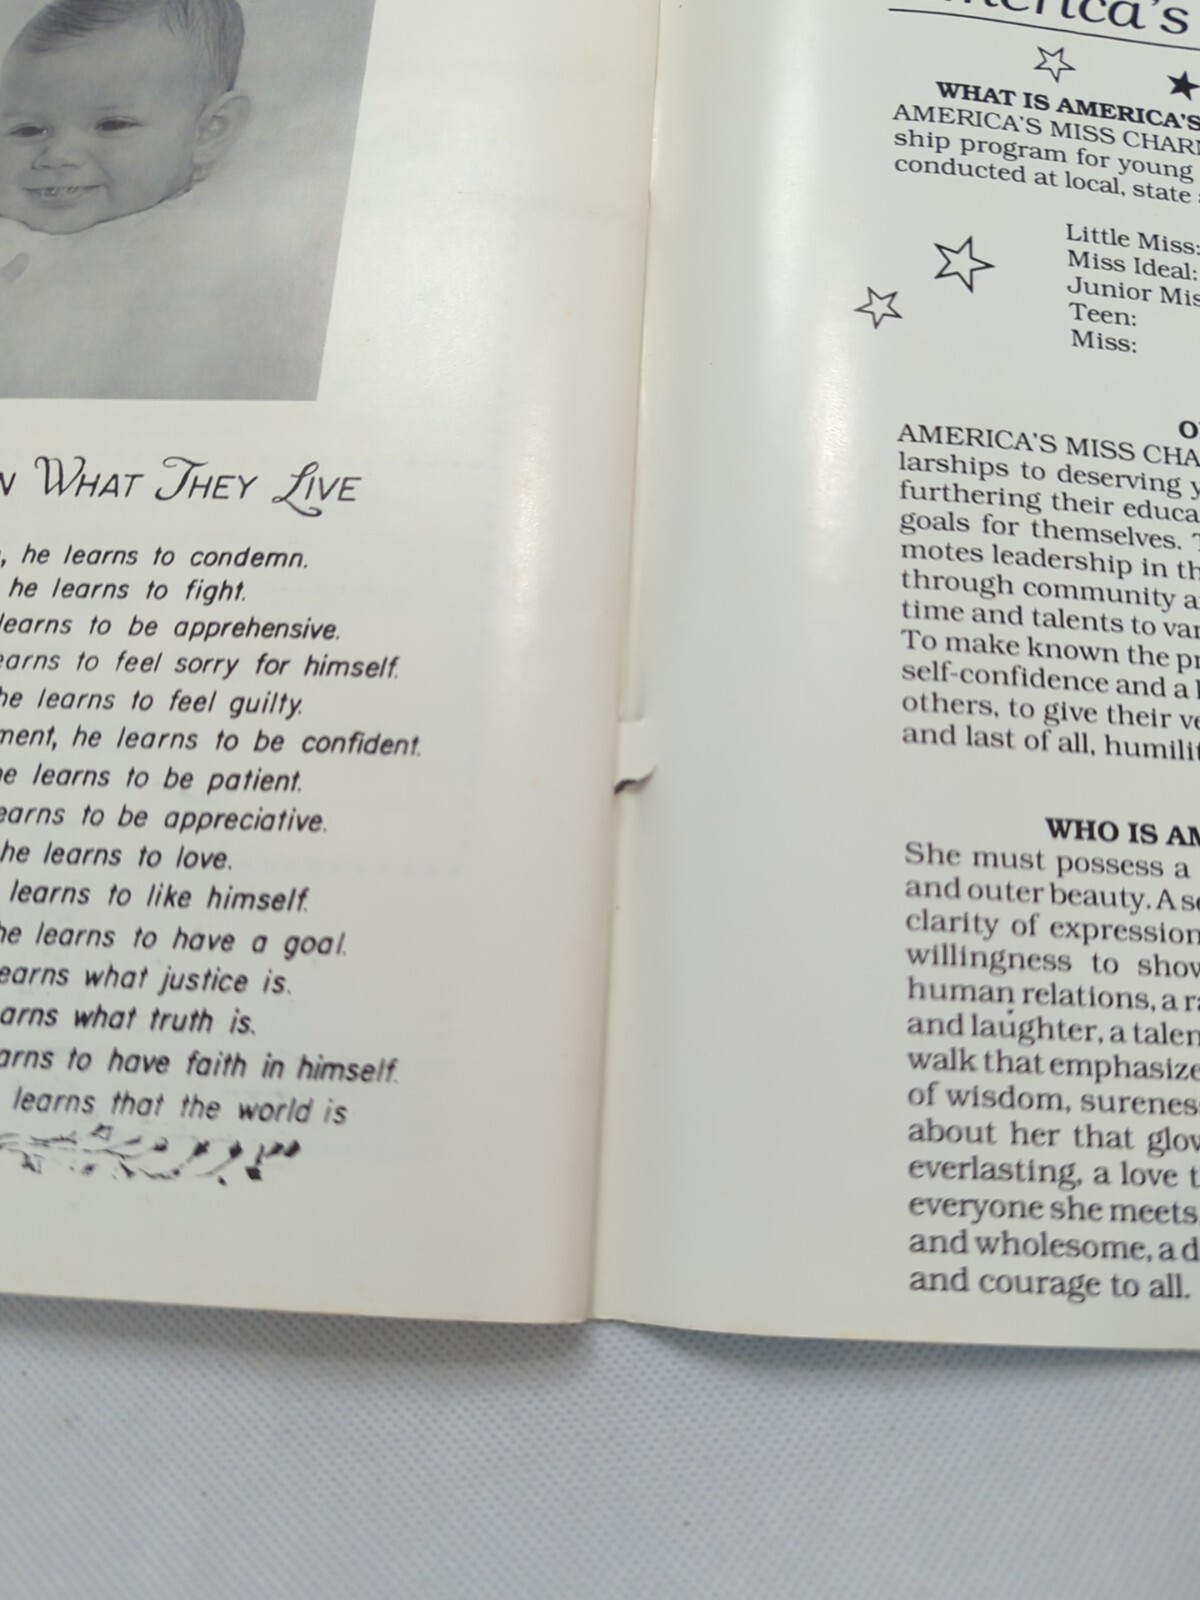 WHAT THEY LIVE
he learns to condemn.
he learns to fight.
learns to be apprehensive.
to feel sorry for himself.
he learns to feel guilty.
he learns to be confident.
learns to be patient.
to be appreciative.
he learns to love.
learns to like himself.
he learns to have a goal.
what justice is.
what truth is.
to have faith in himself.
learns that the world is
WHAT IS AMERICA'S
AMERICA'S MISS
ship program for young
conducted at local, state
Little Miss:
Miss Ideal:
Junior
Teen:
Miss:
AMERICA'S MISS
larships to deserving
furthering their
goals for themselves.
motes leadership in
through community
time and talents to
To make known the
self-confidence and a
others, to give their
and last of all,
WHO IS
She must possess a
and outer beauty. A
clarity of expression
willingness to
human relations, a
and laughter, a
walk that
of wisdom,
about her that
everlasting, a love
everyone she meets,
and wholesome, a
and courage to all.